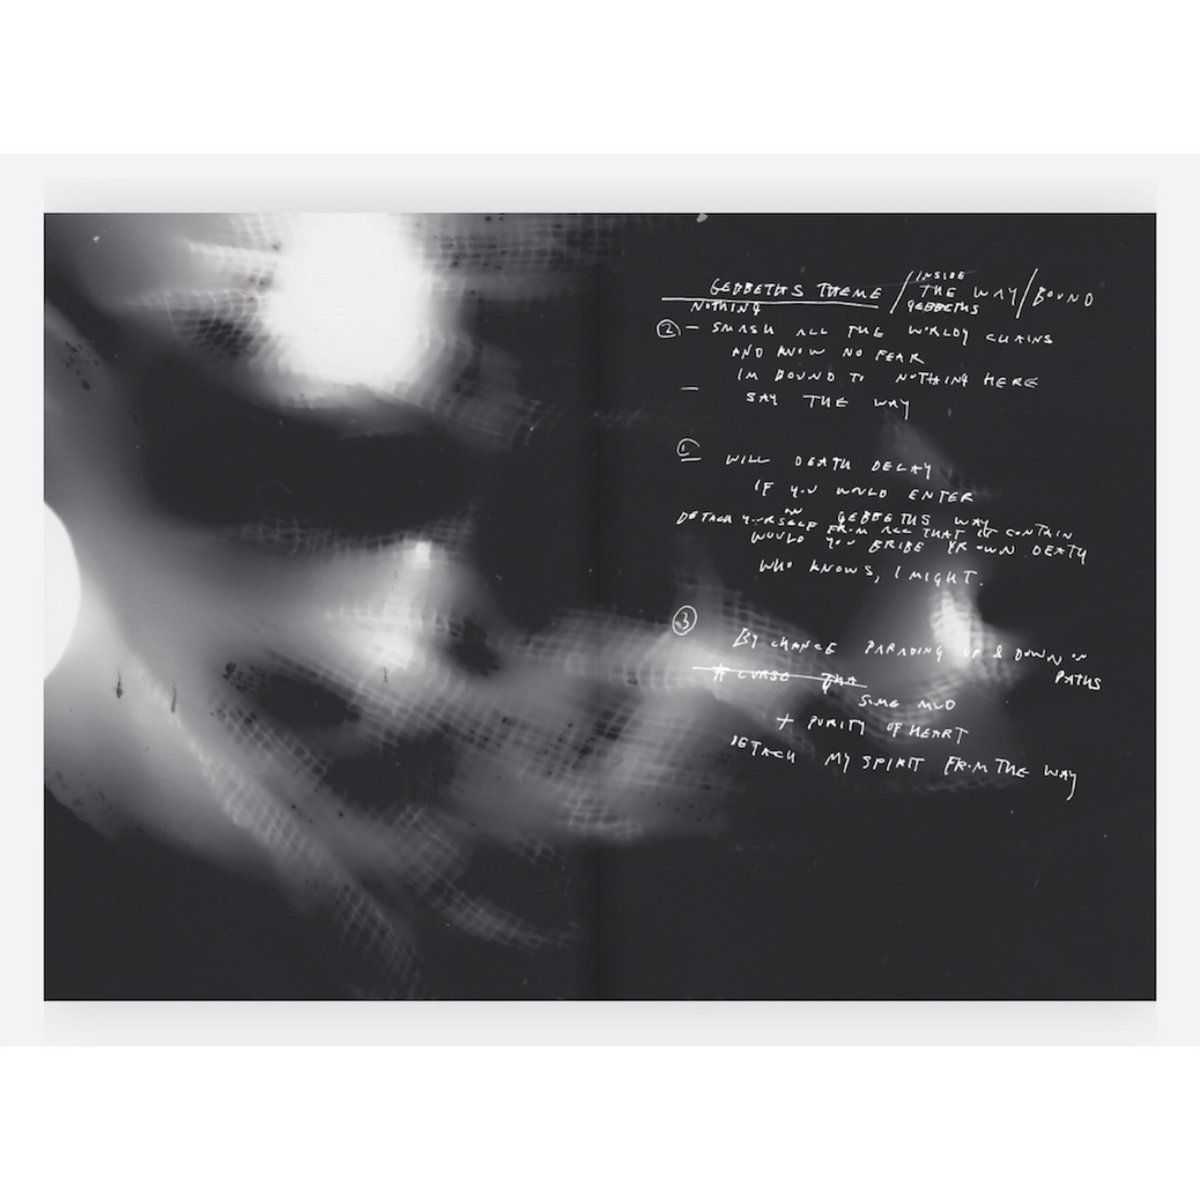 GEBBETHS THEME / INSIDE THE WAY / BOUND
NOTHING GEBBETHS
② — SMASH ALL THE WORLDY CHAINS
AND KNOW NO FEAR
IM BOUND TO NOTHING HERE
— SAY THE WAY
① WILL DEATH DELAY
IF YOU WOULD ENTER
ON GEBBETHS WAY
DETACH YOURSELF FROM ALL THAT IT CONTAIN
WOULD YOU BRIBE YR OWN DEATH
WHO KNOWS, I MIGHT.
③ BY CHANCE PARADING UP & DOWN ON
PATHS
A CURSO THA
SOME MUD
+ PURITY OF HEART
DETACH MY SPIRIT FROM THE WAY